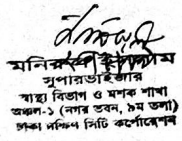 সুপারভাইজার
স্বাস্থ্য বিভাগ ও মশক শাখা
অঞ্চল-১ (নগর ভবন, ৯ম তলা)
ঢাকা দক্ষিণ সিটি কর্পোরেশন